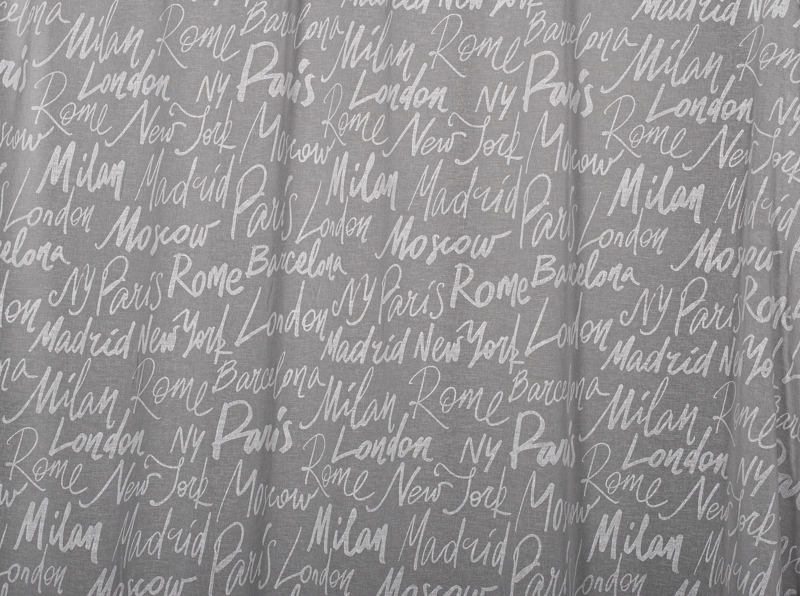 Madrid New York Madrid New
Milan Rome Barcelona Milan Rome Barcelona Milan Rome
London NY Paris London NY Paris London NY
Rome New York Moscow Rome New York Moscow Rome New York
Milan Madrid Paris Milan Madrid Paris Milan Madrid
London Moscow London Moscow London Moscow
Barcelona NY Paris Rome Barcelona NY Paris Rome Barcelona NY Paris Rome
Madrid New York London Madrid New York London Madrid New York
Milan Rome Barcelona Milan Rome Barcelona Milan Rome
London NY Paris London NY Paris London NY
Rome New York Moscow Rome New York Moscow Rome New York
Milan Madrid Paris Milan Madrid Paris Milan Madrid
London Moscow London Moscow London Moscow